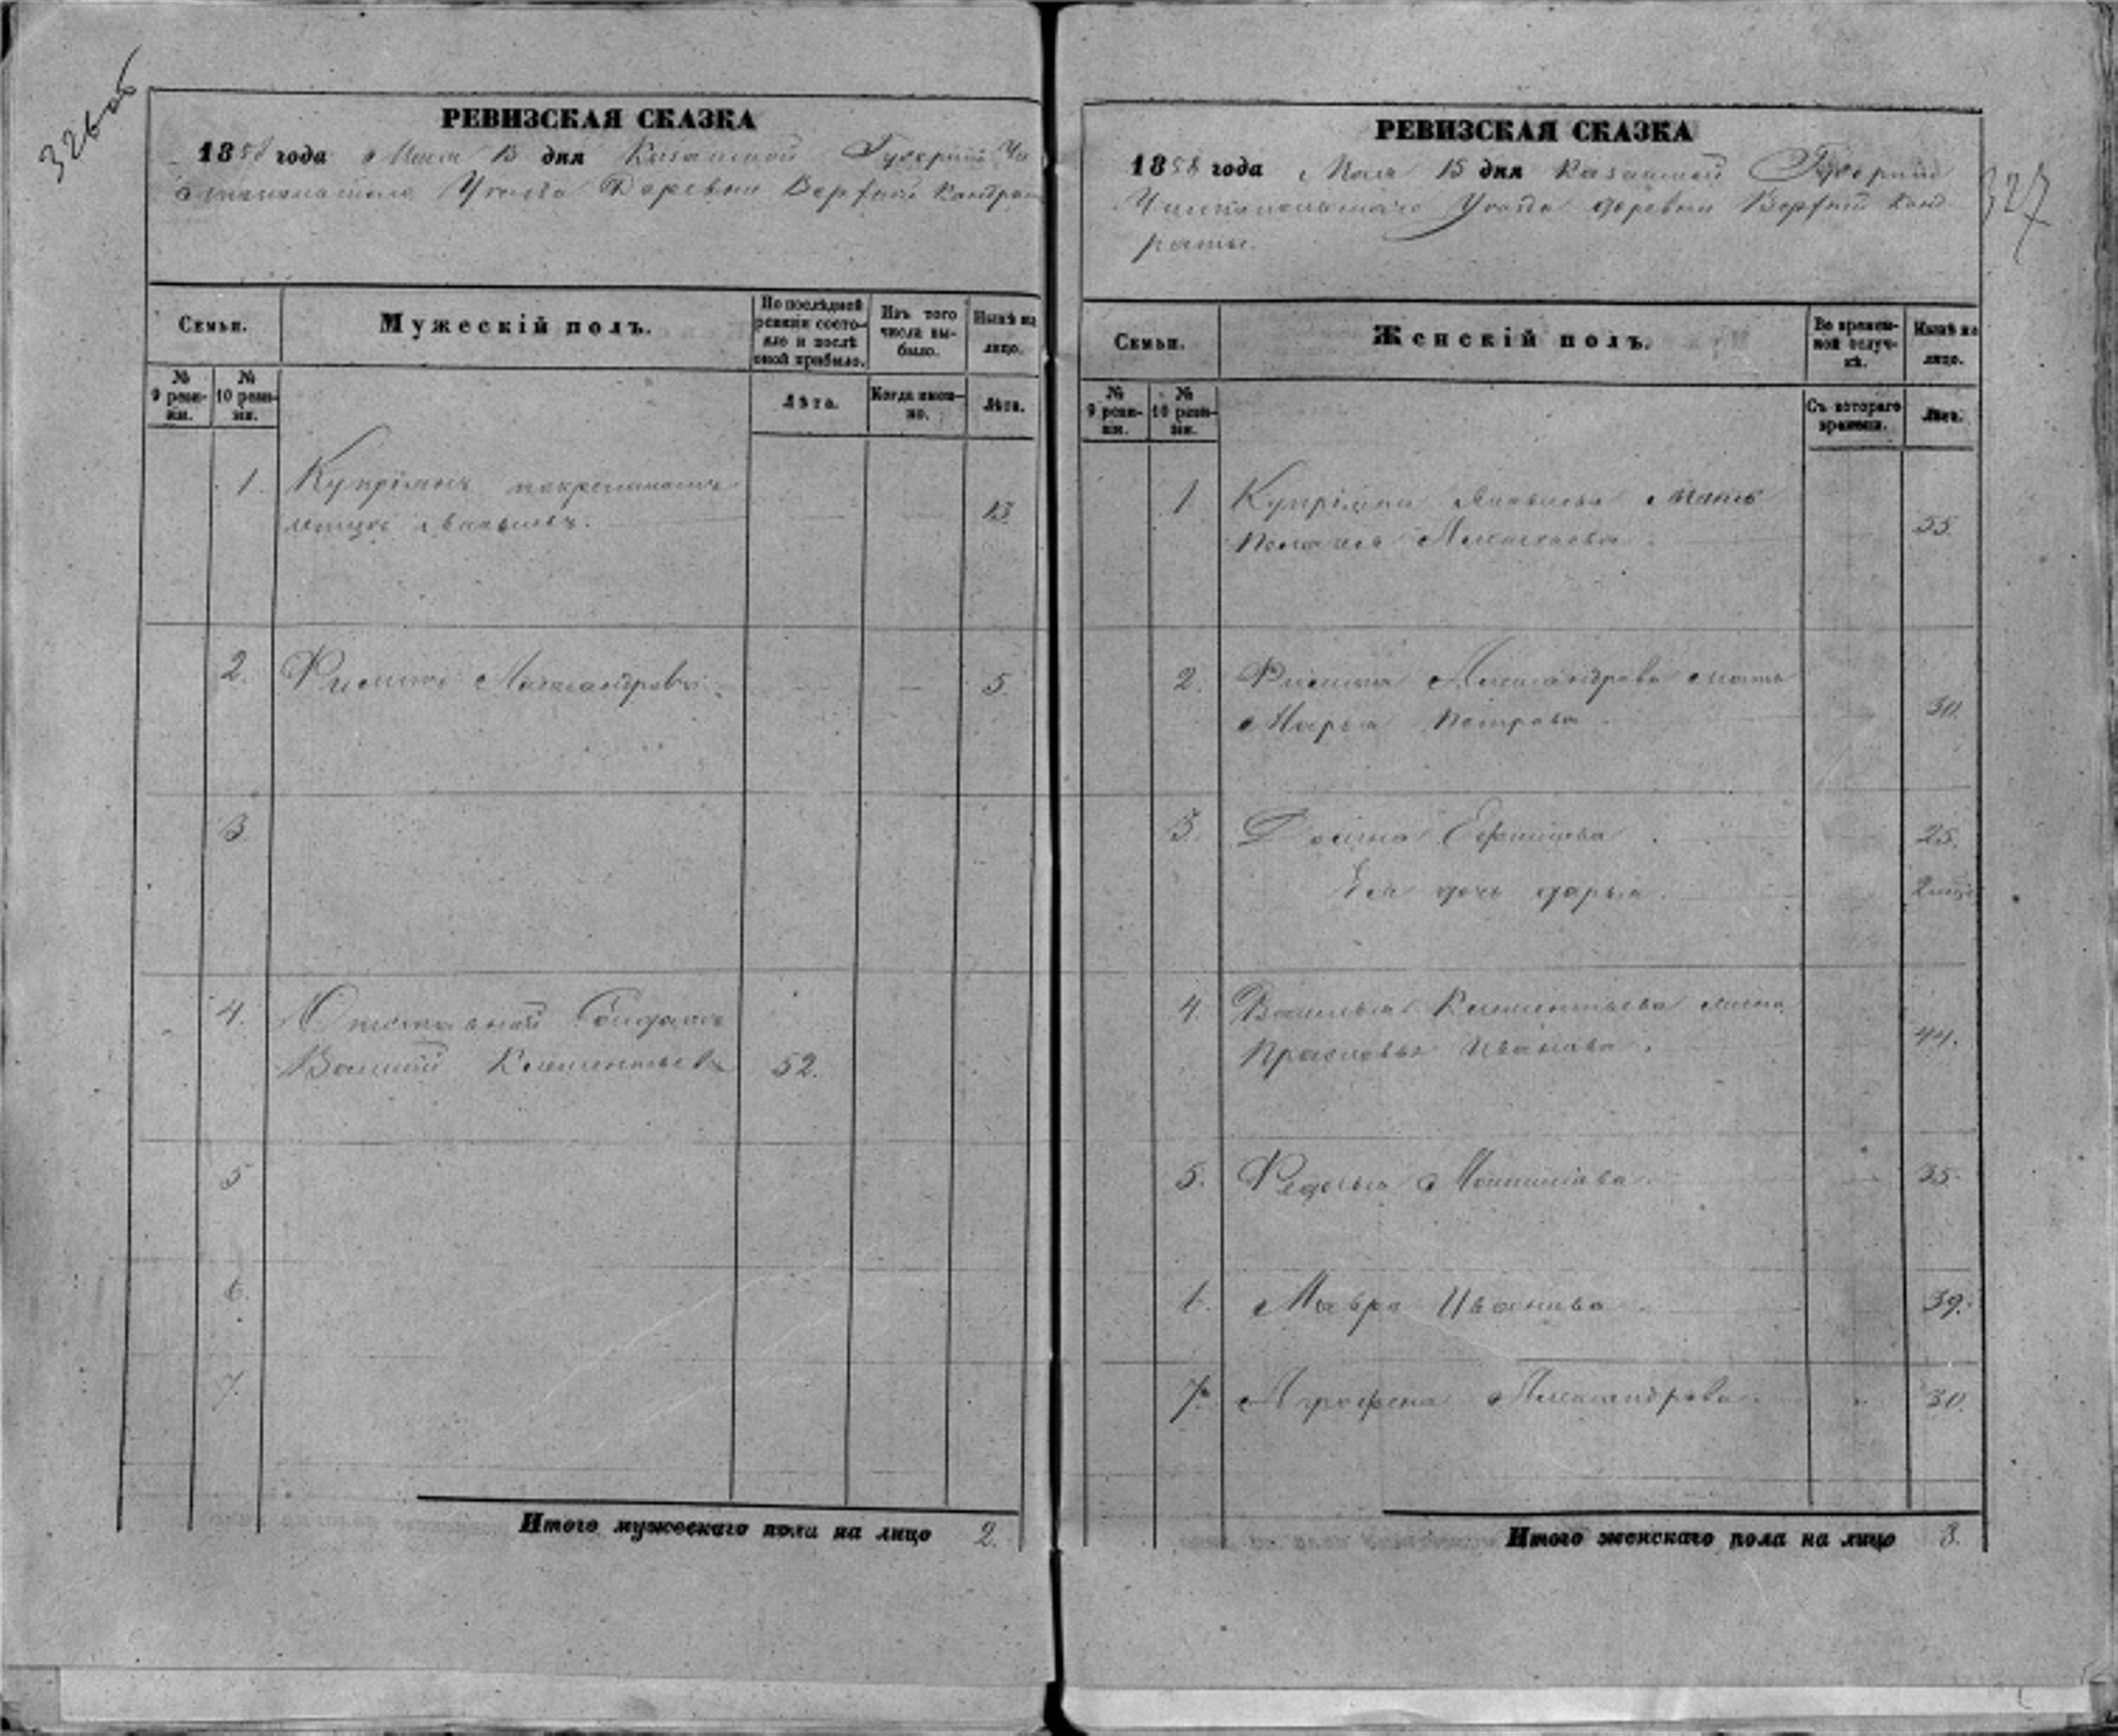 326 об
РЕВИЗСКАЯ СКАЗКА
1858 года Мая 15 дня Казанской Губернии Чи
стопольскаго Уезда Деревни Верхней Кондрат
Семьи.
Мужескій полъ.
По послѣдней ревизіи состояло и послѣ оной прибыло.
Изъ того числа выбыло.
Нынѣ на лицо.
№ 9 ревизіи.
№ 10 ревизіи.
Лѣта.
Когда именно.
Лѣта.
1. Купріянъ
13
2. Филипъ Александровъ. 5.
3
4. Отставной Солдатъ
Василий Клементьевъ 52.
5
6.
7.
Итого мужескаго пола на лицо 2.
327
РЕВИЗСКАЯ СКАЗКА
1858 года Мая 15 дня Казанской Губернии
Чистопольскаго Уезда деревни Верхней Конд
раты.
Семьи.
Женскій полъ.
Во временной отлучкѣ.
Нынѣ на лицо.
№ 9 ревизіи.
№ 10 ревизіи.
Съ котораго времени.
Лѣта.
1. Купріяна мать
Алексеева 55
2. Филипа Александрова мать
Марья Петрова 30
3. Ефимова 25.
Ея дочь Дарья
4. Василья Клементьева жена
Прасковья Иванова 44.
5. Федосья 35.
6. Мавра Иванова 39.
7. Агрофена Александрова 30.
Итого женскаго пола на лицо 8.